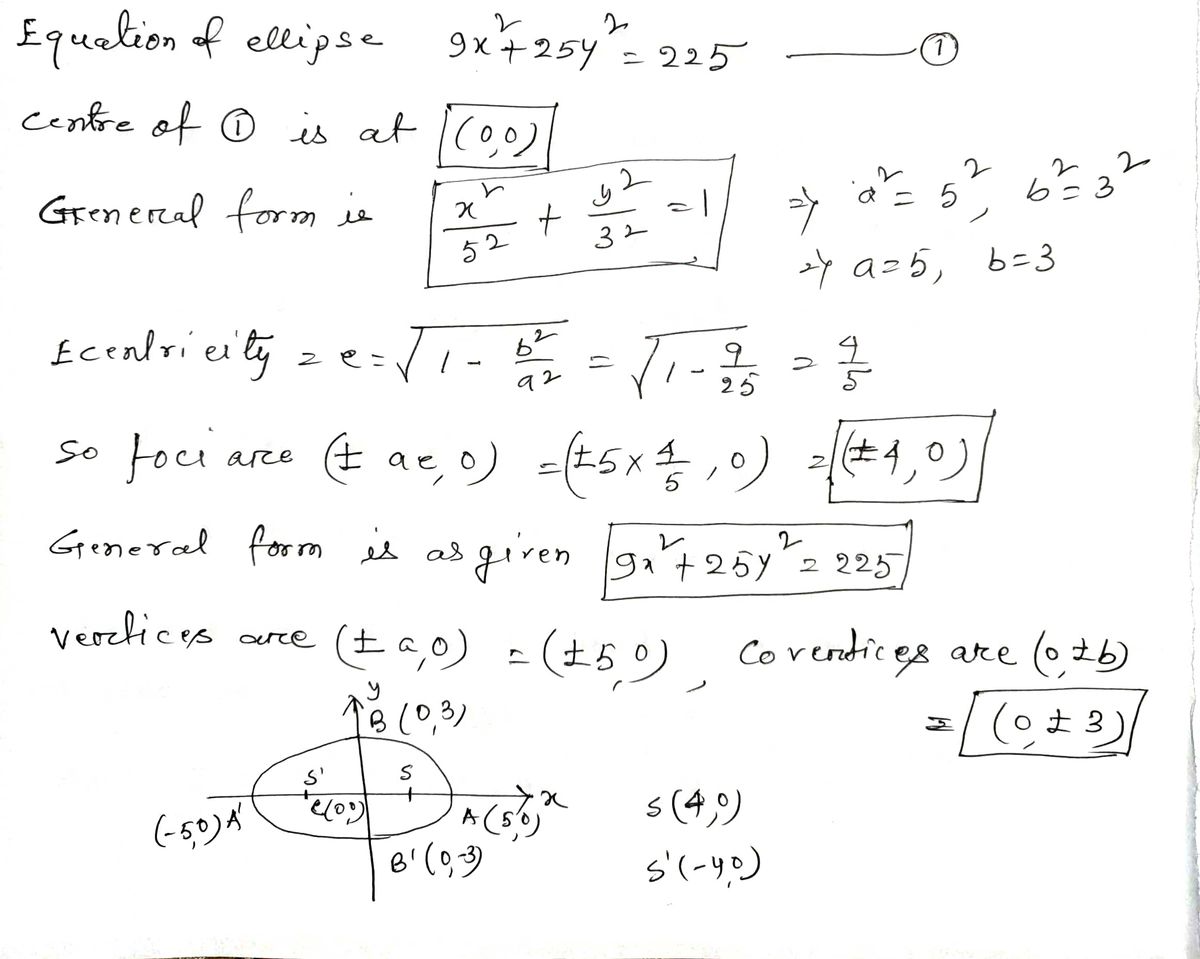 Equation of ellipse 9x²+25y²=225 ——— ①
centre of ① is at (0,0)
General form is x²/5² + y²/3² =1 ⇒ a²= 5², b²=3²
⇒ a=5, b=3
Ecentricity = e=√(1 - b²/a²) = √(1-9/25) = 4/5
so foci are (± ae, 0) =(±5×4/5, 0) =(±4,0)
General form is as given 9x²+25y²=225
vertices are (± a,0) =(±5,0), Co vertices are (0,±b)
= (0,±3)
y
B (0,3)
S' S
(-5,0) A' C(0,0) A(5,0) x
B'(0,-3)
S(4,0)
S'(-4,0)